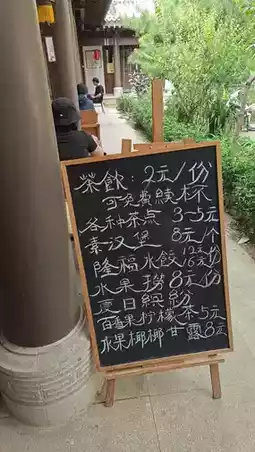 茶飲：2元/份
可免費續杯
各种茶点 3-5元
素汉堡 8元/个
隆福水餃 12元/小 16元/份
水果捞 8元/份
夏日缤纷
百香果柠檬茶5元
水果椰椰甘露8元